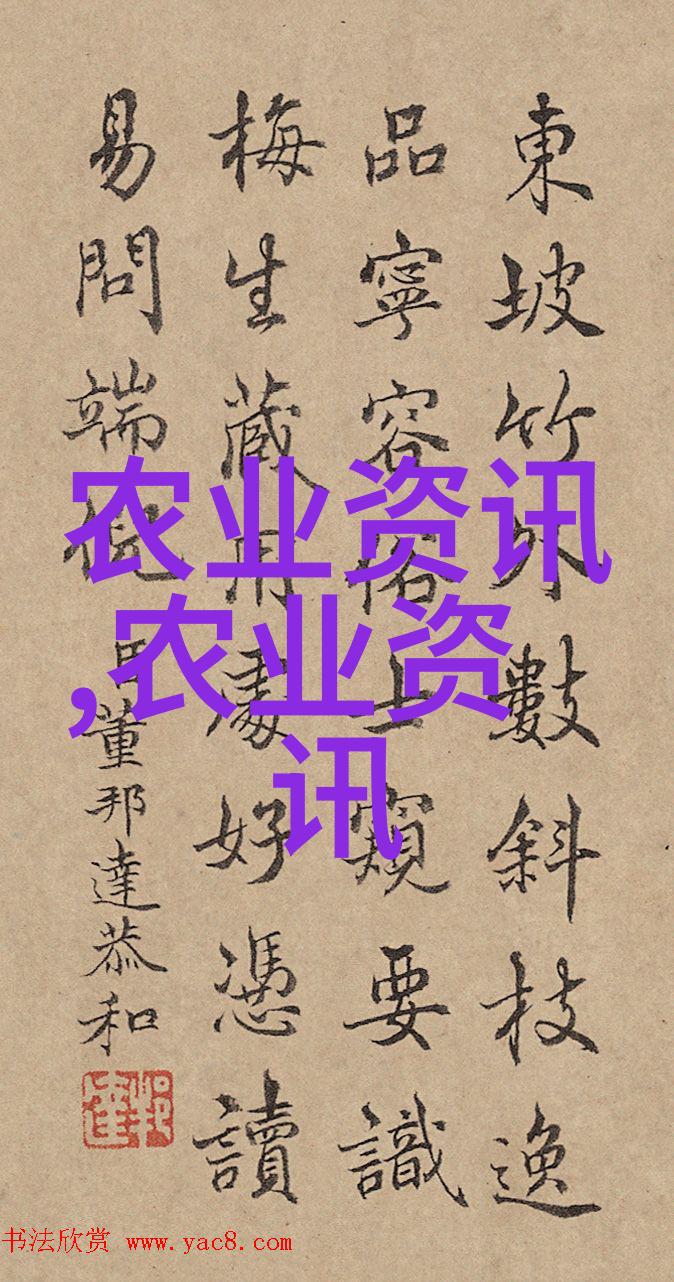 東坡竹外數斜枝逸
品寧容俗士窺要識
梅生藏用處好憑讀
易問端倪
臣董邦達恭和
農业资讯
,农业资
讯
书法欣赏 www.yac8.com